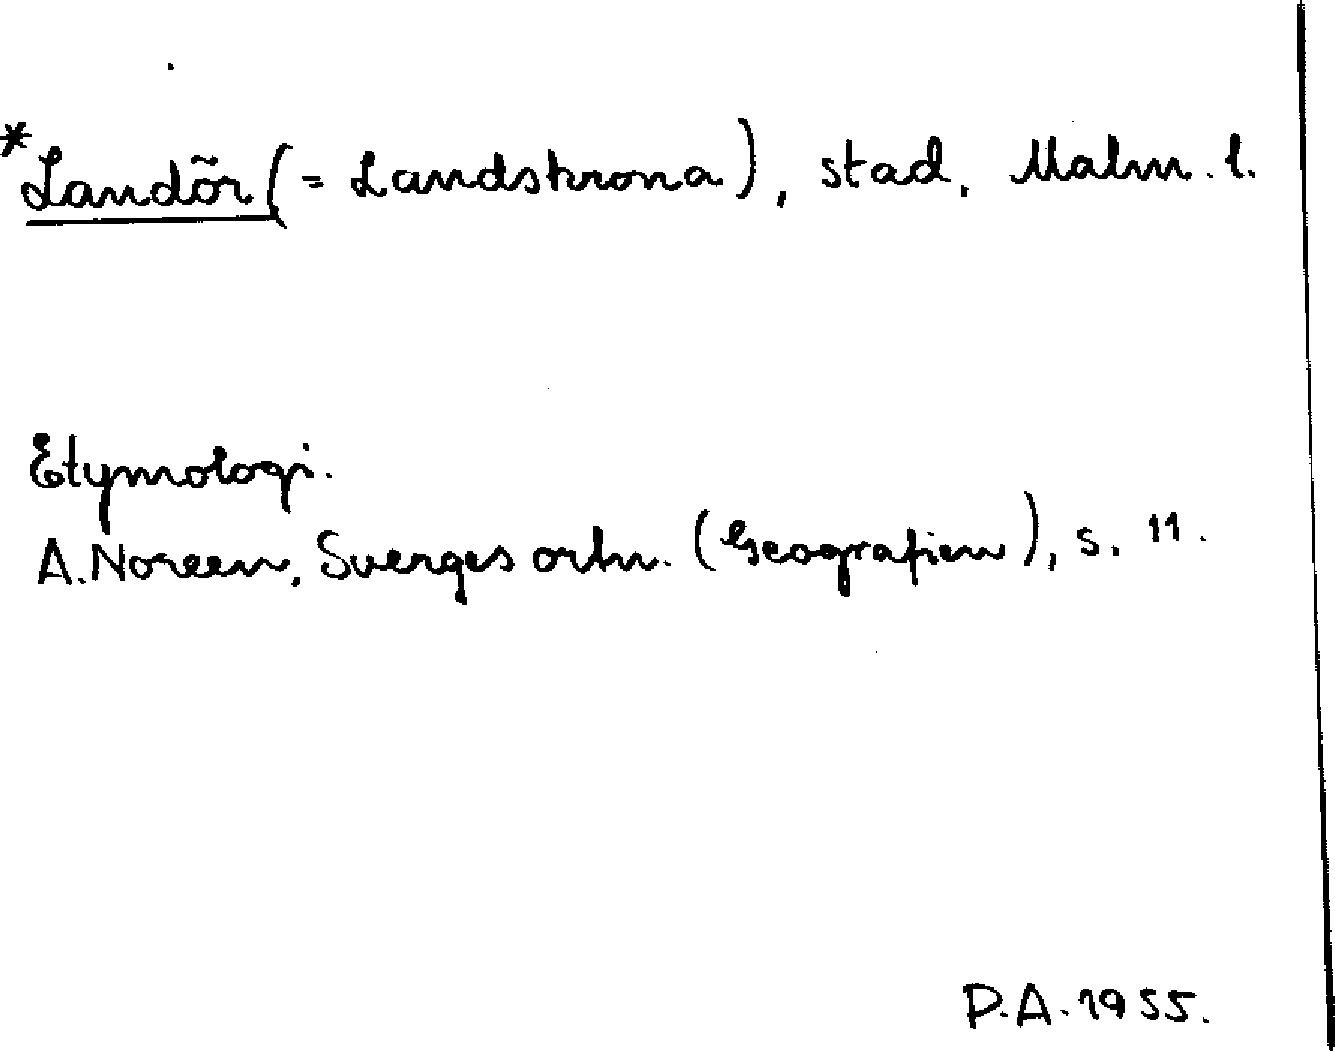 *Landör (= Landskrona), stad, Malm. l.
Etymologi.
A. Noreen, Sverges ortn. (Geografien), s. 11.
P.A. 1955.